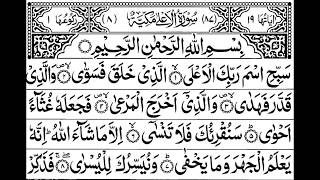 اٰیاتها ۱۹ (۸۷) سُوْرَةُ الْاَعْلٰى مَكِّیَّةٌ (۸) رکوعها ۱
بِسْمِ اللّٰهِ الرَّحْمٰنِ الرَّحِیْمِ
سَبِّحِ اسْمَ رَبِّكَ الْاَعْلَى ۱ الَّذِیْ خَلَقَ فَسَوّٰى ۲ وَالَّذِیْ
قَدَّرَ فَهَدٰى ۳ وَالَّذِیْۤ اَخْرَجَ الْمَرْعٰى ۴ فَجَعَلَهٗ غُثَآءً
اَحْوٰى ۵ سَنُقْرِئُكَ فَلَا تَنْسٰۤى ۶ اِلَّا مَا شَآءَ اللّٰهُ اِنَّهٗ
یَعْلَمُ الْجَهْرَ وَمَا یَخْفٰى ۷ وَنُیَسِّرُكَ لِلْیُسْرٰى ۸ فَذَكِّرْ